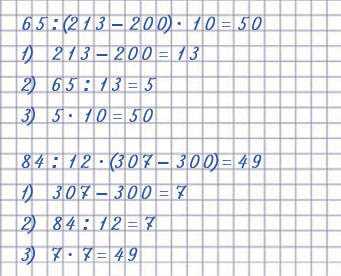 65:(213-200)·10=50
1) 213-200=13
2) 65:13=5
3) 5·10=50
84:12·(307-300)=49
1) 307-300=7
2) 84:12=7
3) 7·7=49